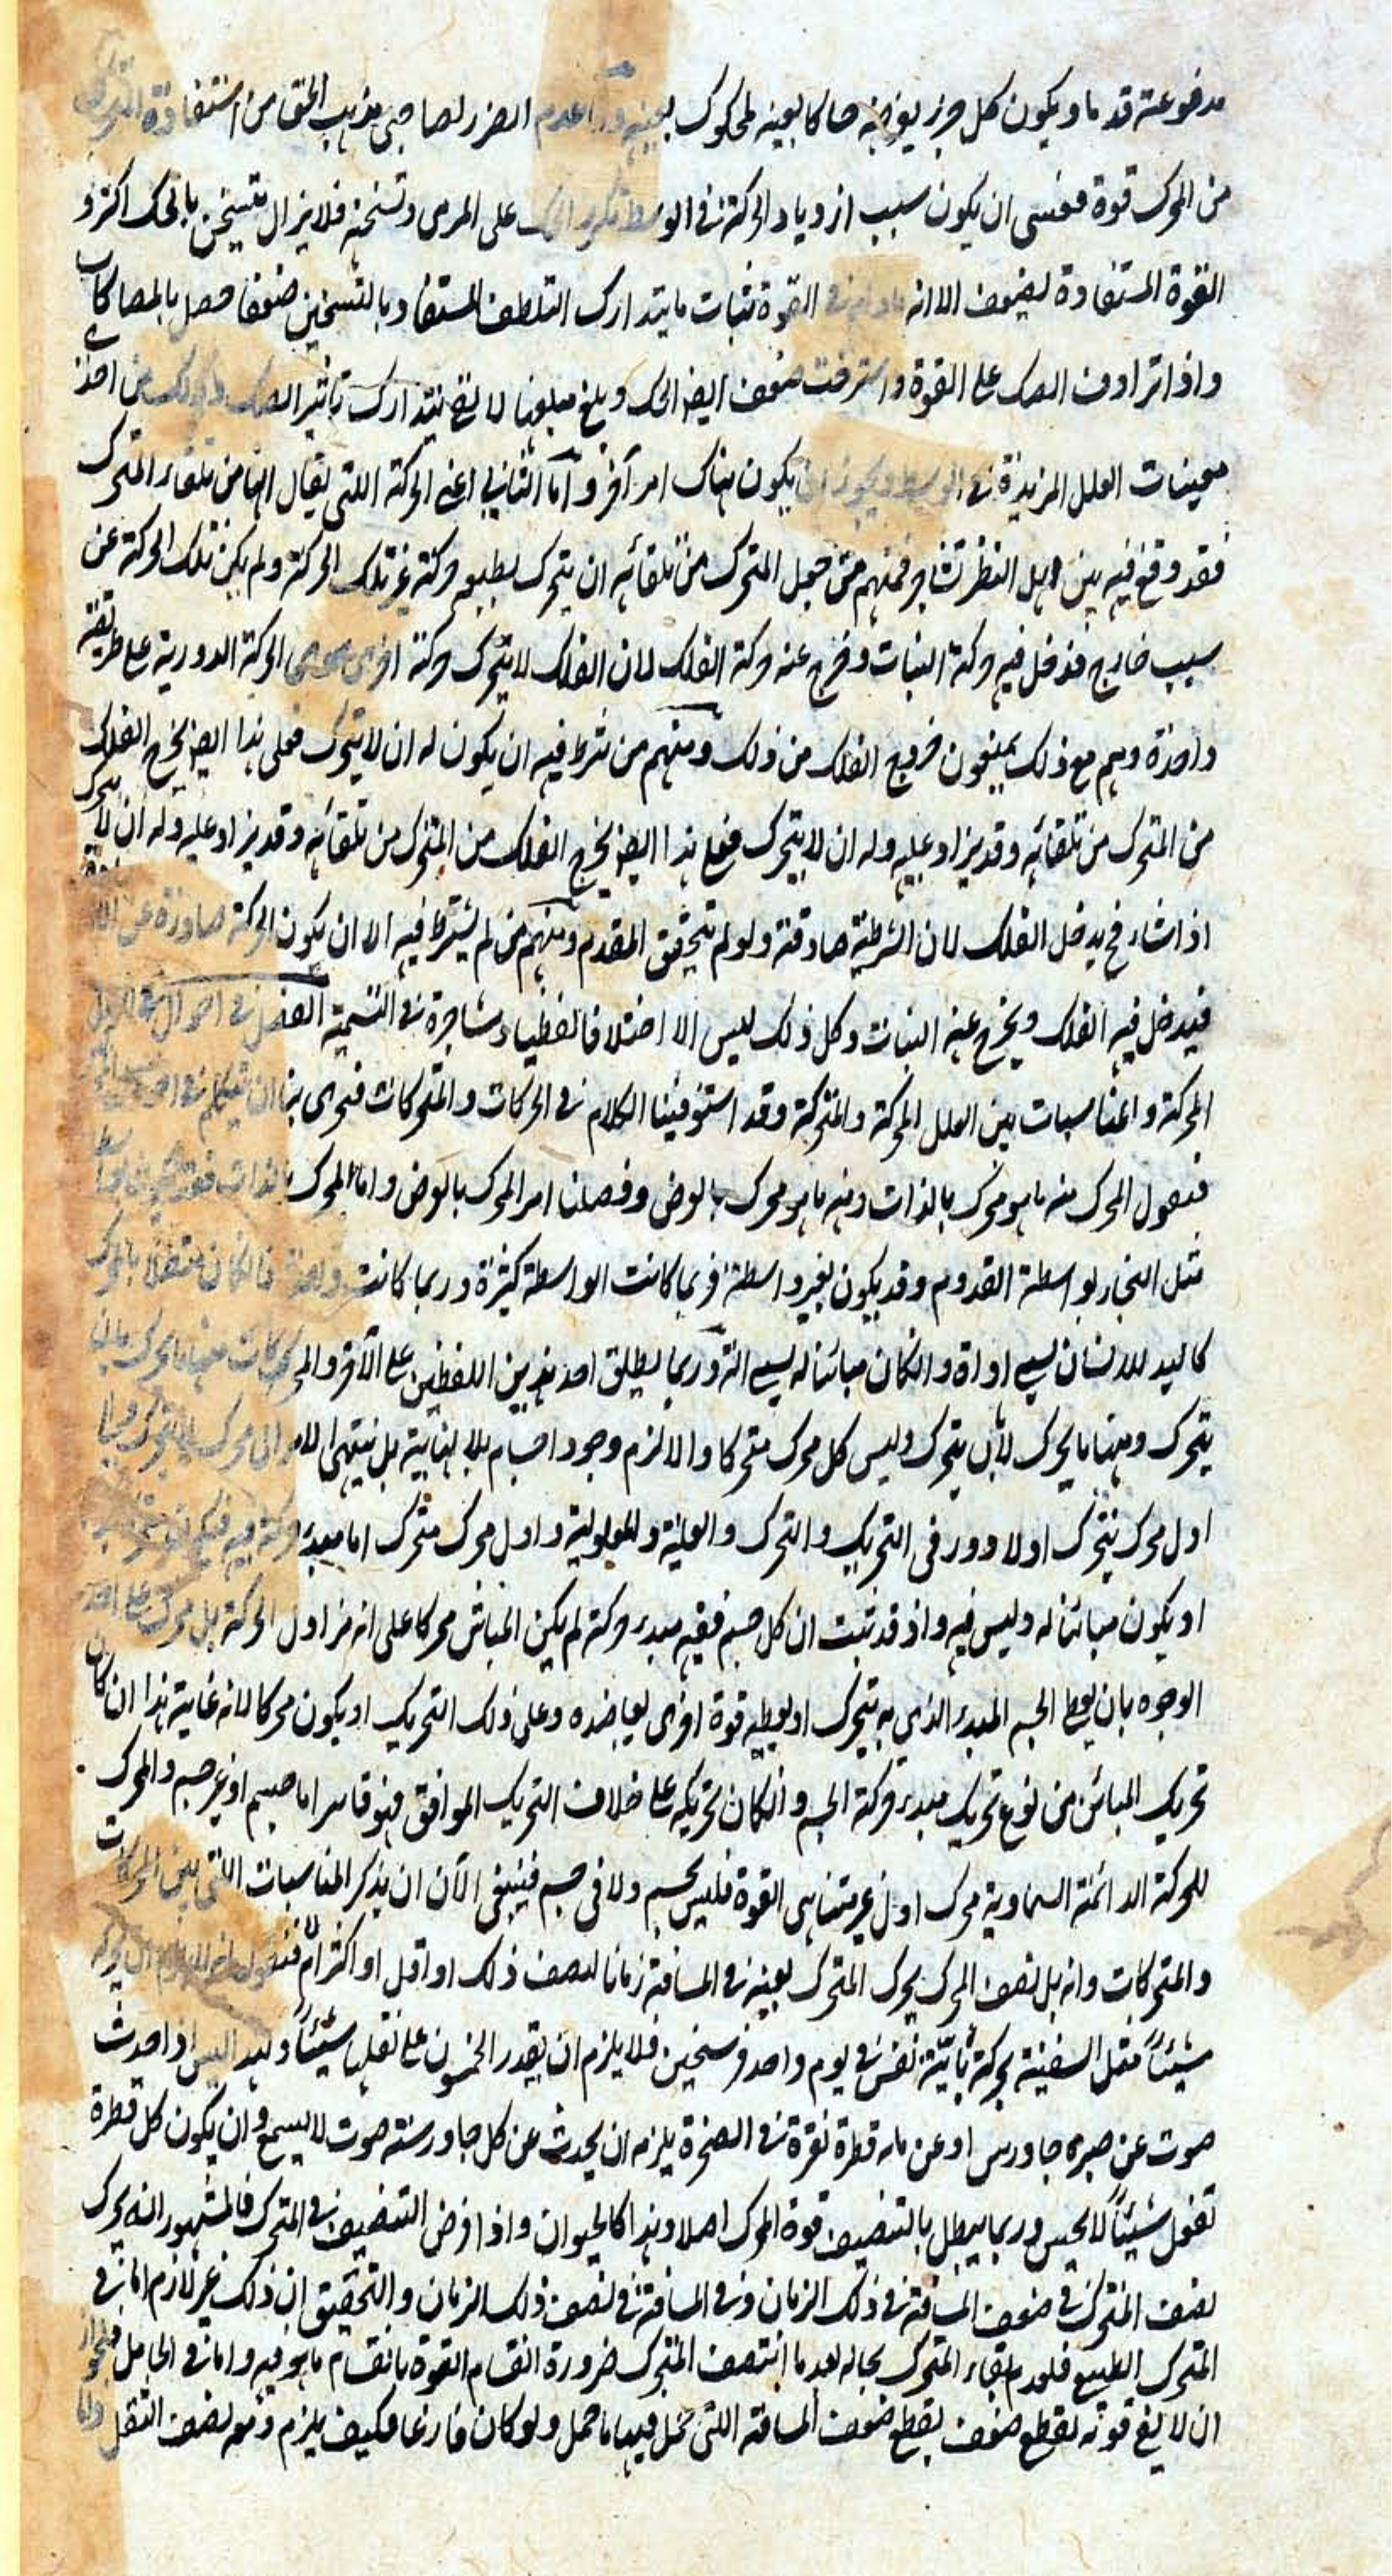 مدفوعته قدما ويكون كل جزء يوجبه صاكا بعينه لمحكوك بعينه اعدم الضرر لصاحبى مذهب الحق من استفادة المتحرك
من المحرك قوة فعسى ان يكون سبب ازدياد الحركة فى الوسط تكرر الحك على المرمى وتسخنه فلا يزال يتسخن بالحك اكثر و
القوة المستفادة يضعف الا انه مادام فى القوة ثبات ما يتدارك التلطف المستفاد بالتسخين ضعفا حصل بالمصاكات
واذا ترادف الصك على القوة واسترخت ضعف ايضا الحك وبلغ مبلغا لا يفى بتدارك تاثير الصك وذلك من احد
معينات العلل المزيدة فى الوسط ويجوز ان يكون هناك امر آخر واما الثانى اعنى الحركة اللتى يقال انها من تلقاء المتحرك
فقد وقع فيه بين اهل النظر تشاجر فمنهم من جعل المتحرك من تلقائه ان يتحرك بطبعه حركة غير تلك الحركة ولم يكن تلك الحركة عن
سبب خارج فدخل فيه حركة النبات وخرج عنه حركة الفلك لان الفلك لا يتحرك حركة اخرى الحركة الدورية على طريقة
واحدة وهم مع ذلك يمنعون خروج الفلك من ذلك ومنهم من شرط فيه ان يكون له ان لا يتحرك فعلى هذا ايضا يخرج الفلك
من المتحرك من تلقائه وقد يزاد عليه وله ان لا يتحرك فعلى هذا ايضا يخرج الفلك من المتحرك من تلقائه وقد يزاد عليه وله ان لا يتحرك
اذا شاء فح يدخل الفلك لان الشرطية صادقة ولو لم يتحقق المقدم ومنهم من لم يشترط فيه الا ان يكون الحركة صادرة عن الارادة
فيدخل فيه الفلك ويخرج عنه النبات وكل ذلك ليس الا اختلافا لفظيا ومشاجرة فى التسمية الفصل فى احوال العلل
المحركة والمناسبات بين العلل المحركة والمتحركة وقد استوفينا الكلام فى الحركات والمتحركات فحرى بنا ان نتكلم فى احوال
فنقول المحرك منه ما هو محرك بالذات ومنه ما هو محرك بالعرض وفصلنا امر المحرك بالعرض واما المحرك بالذات فقد يكون بواسطة
مثل النجار بواسطة القدوم وقد يكون بغير واسطة فربما كانت الواسطة كثيرة وربما كانت واحدة فما كان متصلا بالمحرك
كاليد للانسان يسمى اداة وان كان مباينا له يسمى آلة وربما يطلق احد هذين اللفظين على الآخر والمحركات منها ما يحرك بان
يتحرك ومنها ما يحرك لا بان يتحرك وليس كل محرك متحركا والا لزم وجود اجسام بلا نهاية بل ينتهى الامر الى محرك لا يتحرك وما
اول محرك يتحرك اولا دور فى التحريك والتحرك والعلية والمعلولية واول محرك متحرك اما مبدء حركته فيه فيكون متحركا
او يكون مباينا له وليس فيه واذ قد ثبت ان كل جسم ففيه مبدء حركة لم يكن المباين محركا على انه من اول الحركة بل محرك على احد
الوجوه بان يعطى الجسم المبدء الذى به يتحرك او يعطيه قوة اخرى يعاضده وعلى ذلك التحريك او يكون محركا لانه غاية هذا ان كان
تحريك المباين من نوع تحريك مبدء حركة الجسم وان كان تحريكه على خلاف التحريك الموافق فهو قاسر اما جسم او غير جسم والمحرك
للحركة الدائمة السماوية محرك اول غير متناهى القوة فليس بجسم ولا فى جسم فينبغى الآن ان يذكر المناسبات اللتى بين المحركات
والمتحركات وانه هل نصف المحرك يحرك المتحرك بعينه فى المسافة زمانا نصف ذلك او اقل او اكثر ام فنقول انه لا يلزم ان يحركه
شيئا مثل السفينة يحركه مائة نفس فى يوم واحد فرسخين فلا يلزم ان يقدر الخمسون على نقلها شيئا ولهذا ليس اذا حدث
صوت عن صبره جاورس او عن ماء قطرة نقرة فى الصخرة يلزمه ان يحدث عن كل جاورسة صوت لا يسمع وان يكون كل قطرة
تفعل شيئا لا يحس وربما يبطل بالتنصيف قوة المحرك اصلا وهذا كالحيوان واذا فرض التنصيف فى المتحرك فالمشهور انه يحرك
نصف المتحرك فى ضعف المسافة فى ذلك الزمان وفى المسافة فى نصف ذلك الزمان والتحقيق ان ذلك غير لازم اما فى
المتحرك الطبيعى فلعدم بقاء المتحرك بحاله بعد ما انتصف المتحرك ضرورة انقسام القوة بانقسام ما هو فيه واما فى الحامل فلجواز
ان لا يفى قوته بقطع ضعف يقطع ضعف المسافة اللتى حمل فيها ما حمل ولو كان فارغا فكيف يلزم ومعه نصف الثقل واما